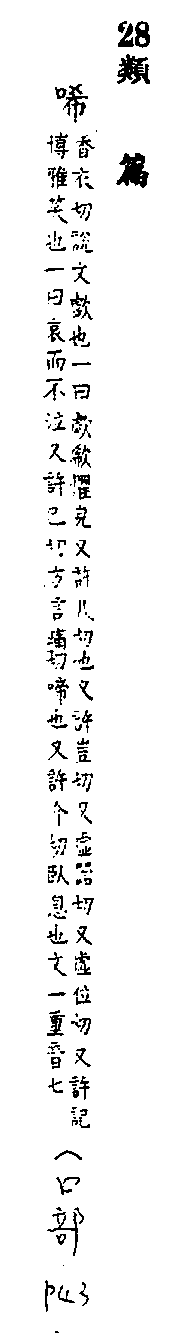 28類篇
唏
香衣切說文歔也一曰歔欷懼皃又許几切也又許豈切又虛器切又虛位切又許記
博雅笑也一曰哀而不泣又許已切方言痛切啼也又許个切臥息也文一重音七
(口部 P43